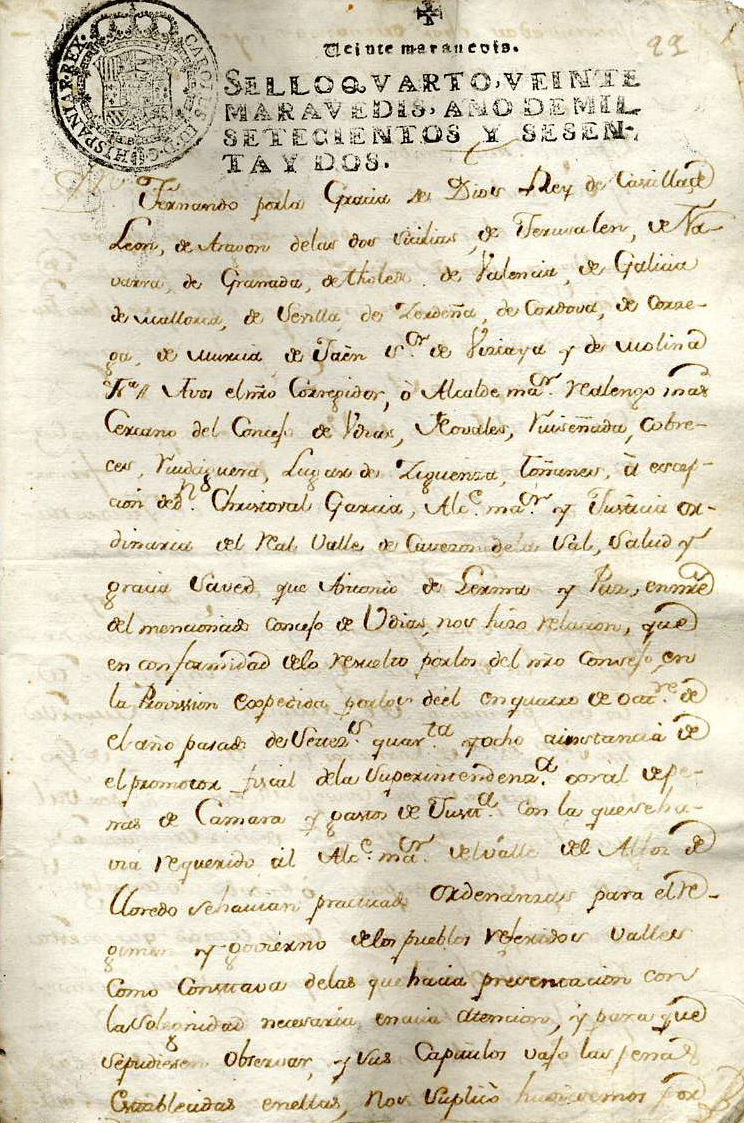 CAROLUS III D G HISPANIAR REX
Veinte maravedis.
22
SELLO QVARTO, VEINTE
MARAVEDIS, AÑO DE MIL
SETECIENTOS Y SESEN-
TA Y DOS.
Fernando por la Gracia de Dios Rey de Castilla de
Leon, de Aragon delas dos Sicilias, de Jerusalen, de Na-
varra, de Granada, de tholedo de Valencia, de Galicia
de Mallorca, de Sevilla, de Zerdeña, de Cordova, de Corze-
ga, de Murcia de Jaen S.or de Vizcaya y de Molina
Vos el nro Corregidor, ò Alcalde ma.or Realengo mas
Cercano del Concejo de Vdias, Novales, Ruiseñada, Cobre-
ces, Rudaguera, Lugar de Ziguenza, Toñanes, à escep-
cion de d.n Christoval Garcia, Alc.e ma.or y Justicia or-
dinaria del Real Valle de Cavezon dela Sal, Salud y
gracia Saved que Antonio de Lerma y Paz, en nre
del mencionado Concejo de Udias, nos hizo relacion, que
en conformidad delo resuelto por los del nro Consejo, en
la Provission expedida por los deel en quatro de oct.re de
el año pasado de Setez.s quar.ta y ocho ainstancia de
el promotor fiscal dela Superintendenz.a gral de pe-
nas de Camara y gastos de Just.a con la que se ha-
via requerido àl Alc.e ma.or del valle del Alfoz de
Lloredo se havian practicado ordenanzas para el re-
gimen y govierno delos pueblos referidos valles
Como Constava delas que hacia presentacion con
la Solegnidad necesaria, en cuia atencion, y para que
se pudiesen observar, y sus Capitulos vajo las penas
Establecidas en ellas, nos suplicò huviesemos por